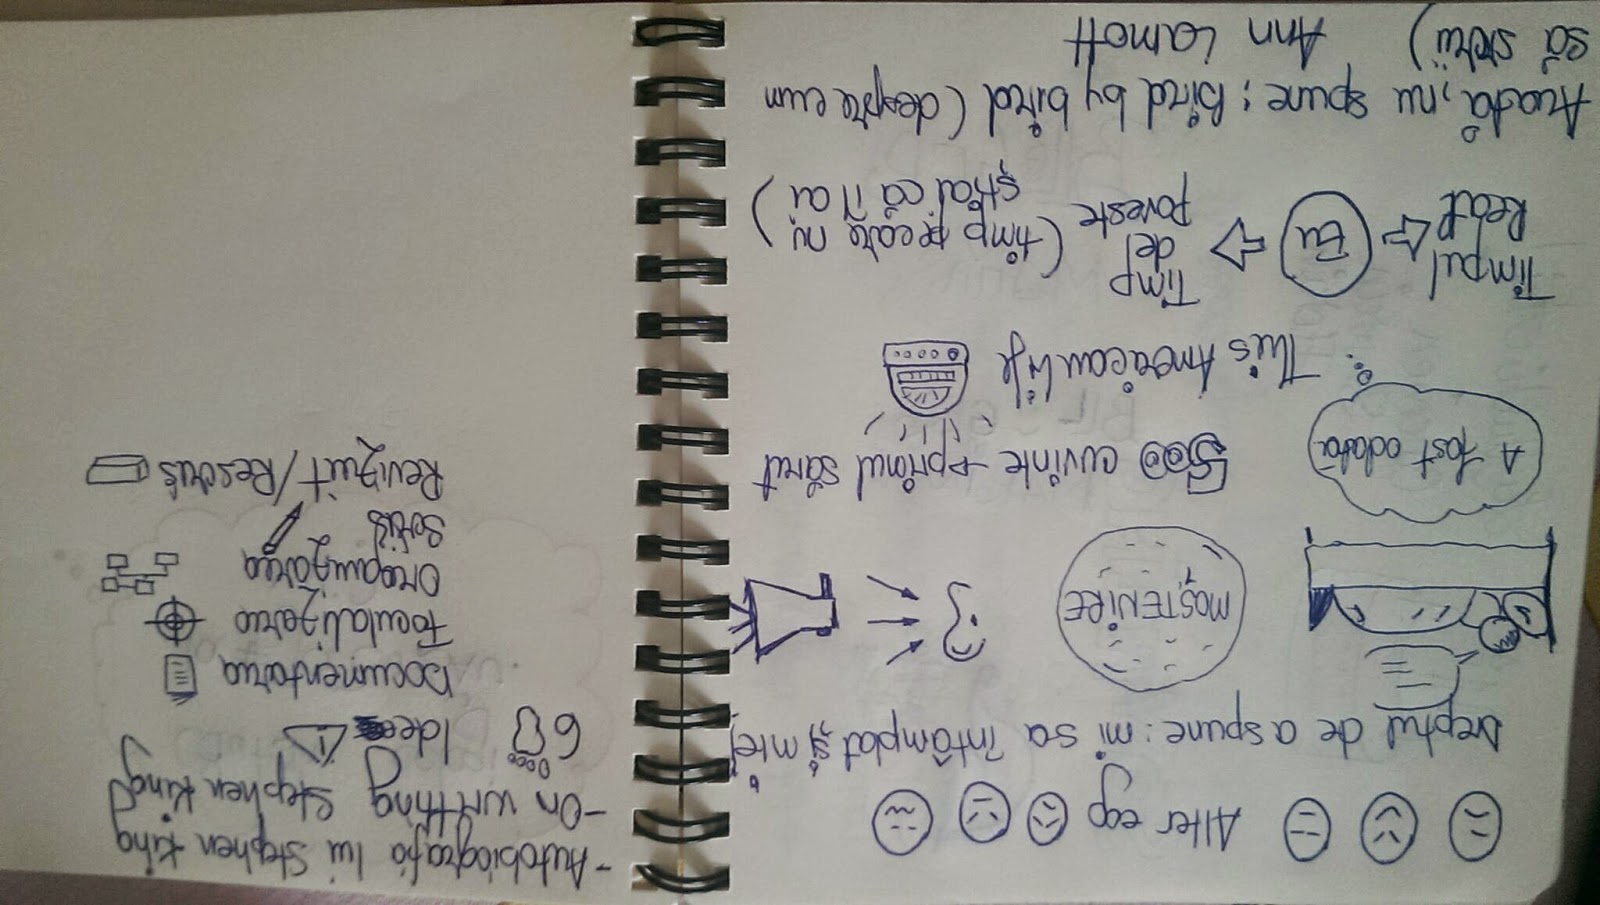 Alter ego
Dreptul de a spune: mi sa întâmplat și mie!
MOȘTENIRE
A fost odată
500 cuvinte → primul sărut
This American Life
Timpul Real
Eu
Timp de poveste
(timp pe care nu
știai că îl ai)
Arată, nu spune: Bird by bird (despre cum
să scrii) Ann Lamott
-Autobiografia lui Stephen King
-On writting Stephen King
6 Idee
Documentarea
Focalizarea
Organizarea
Scris
Revizuit/Rescris